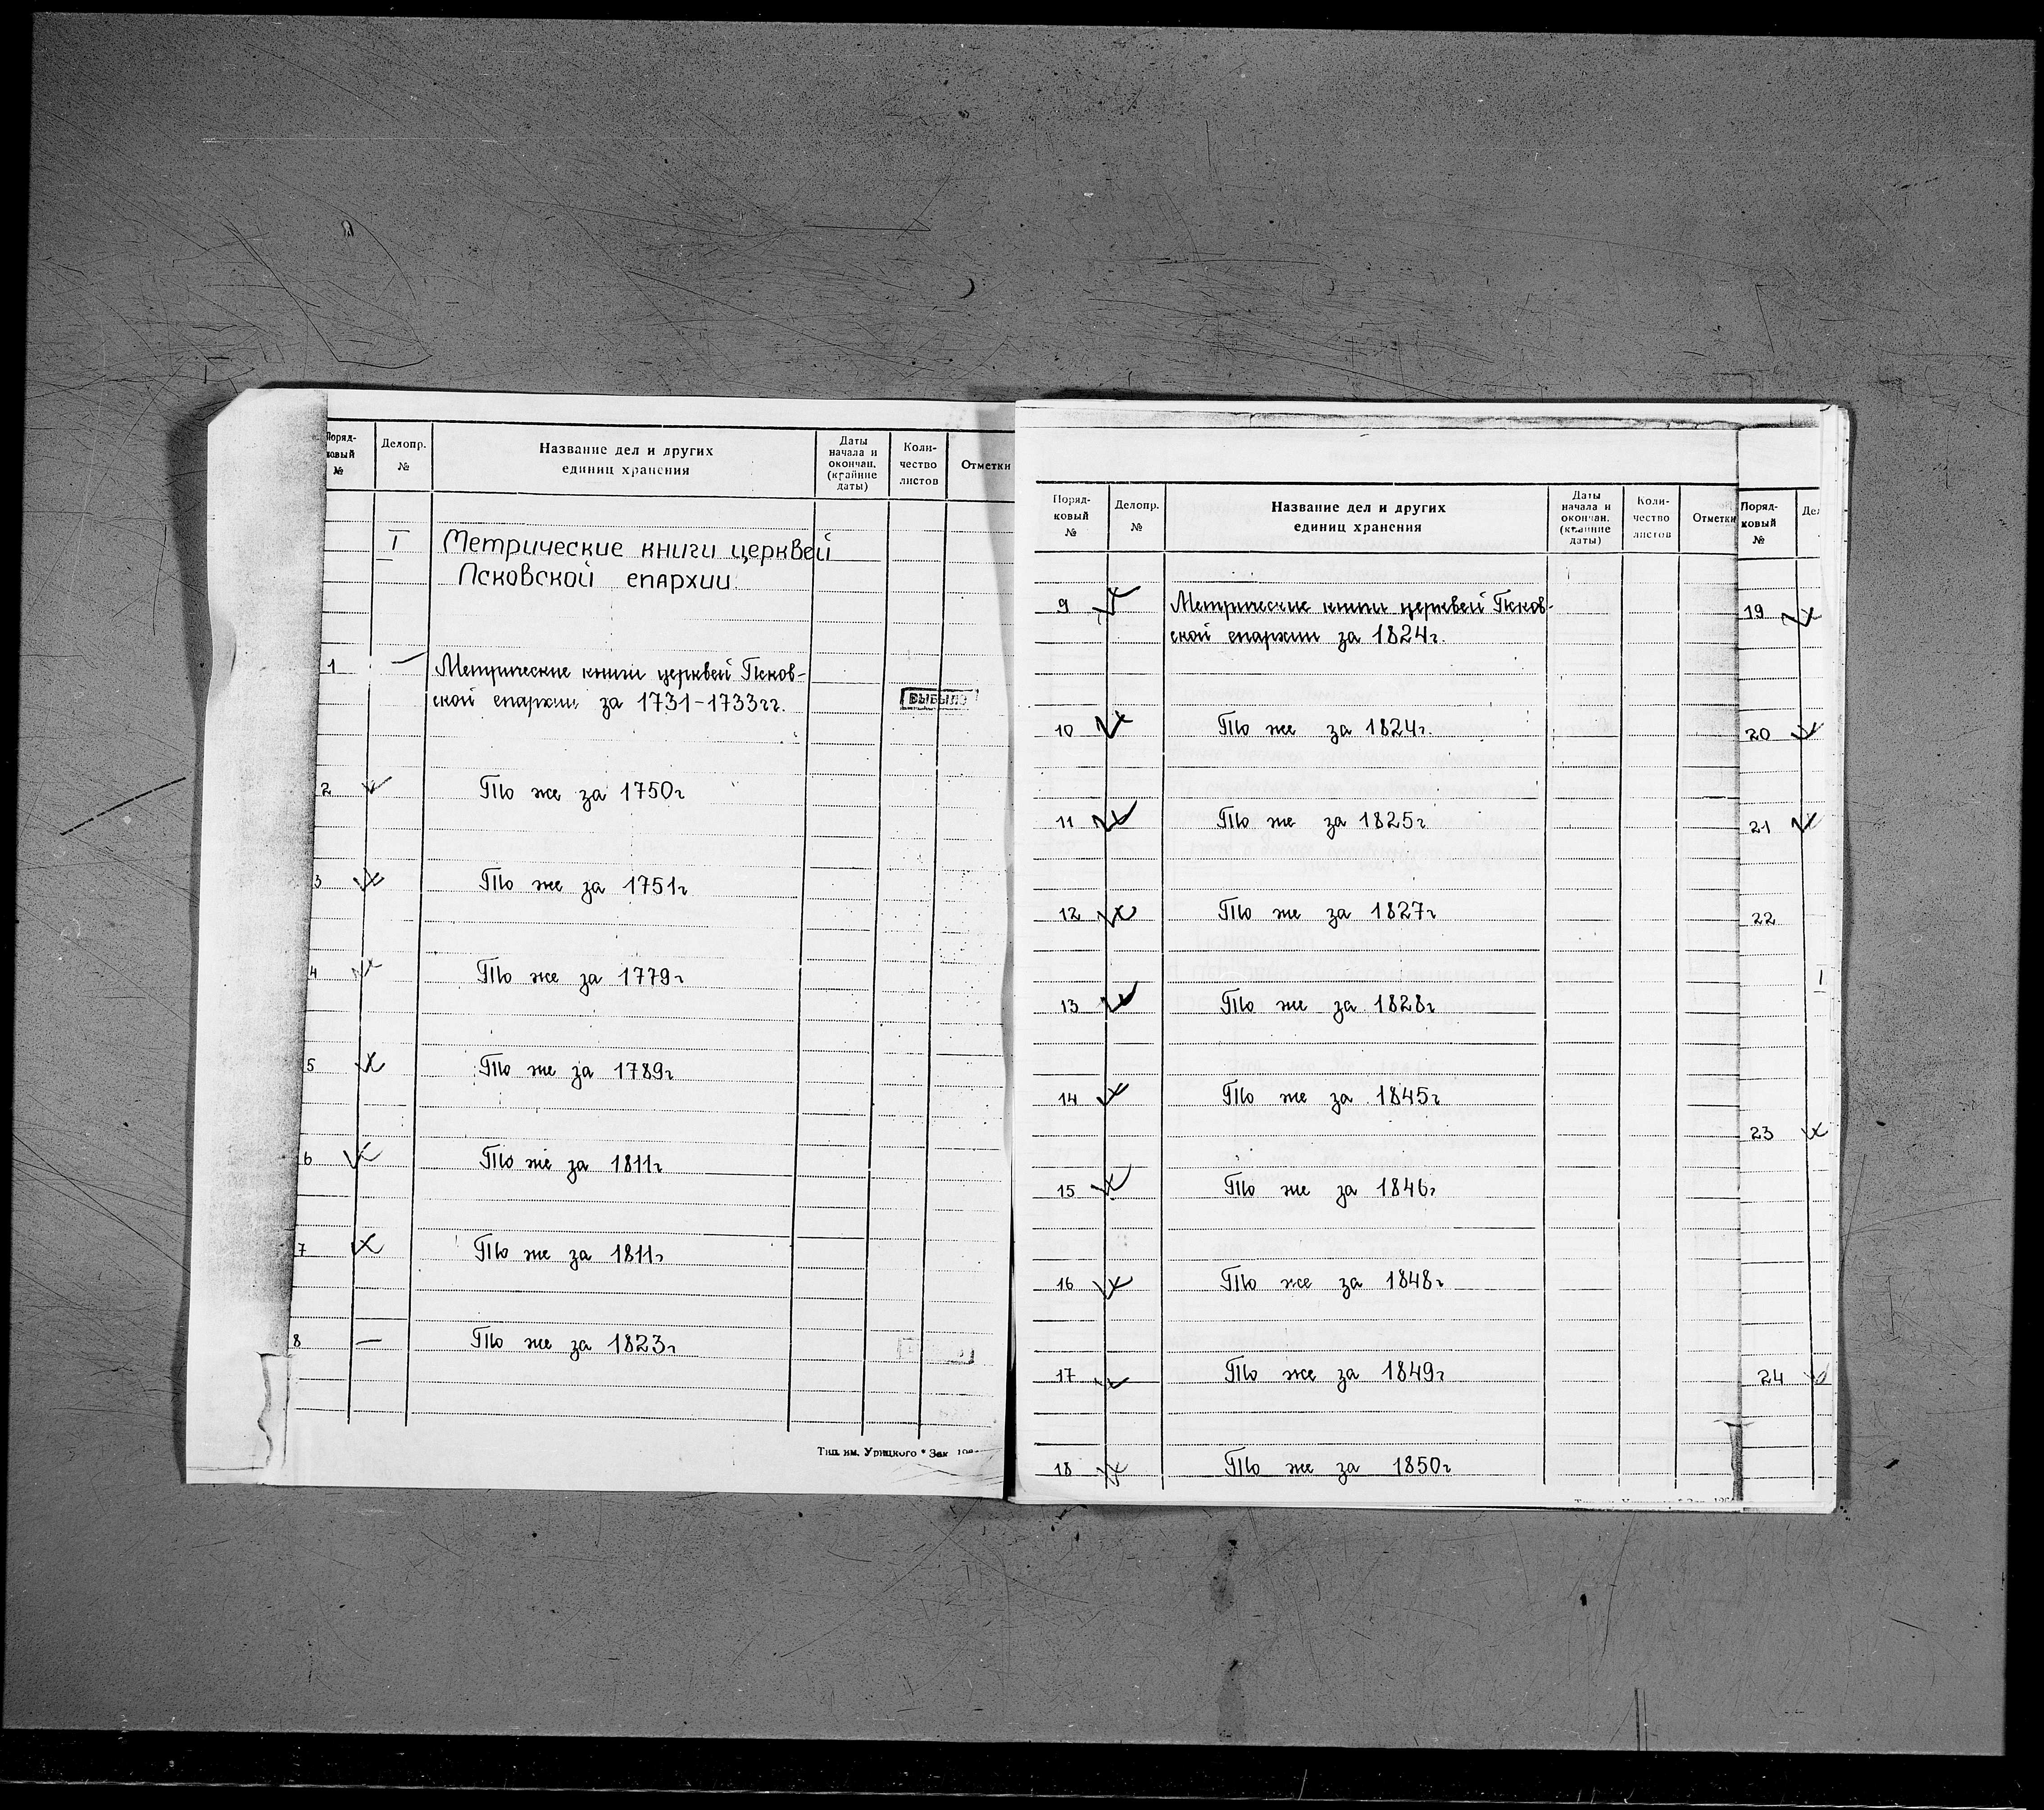 Поряд-
ковый
№
Делопр.
№
Название дел и других
единиц хранения
Даты
начала и
окончан.
(крайние
даты)
Коли-
чество
листов
Отметки
I
Метрические книги церквей
Псковской епархии.
1 — Метрические книги церквей Псков-
ской епархии за 1731-1733гг.
ВЫБЫЛО
2 То же за 1750г
3 То же за 1751г
4 То же за 1779г
5 То же за 1789г
6 То же за 1811г
7 То же за 1811г
8 — То же за 1823г
Тип. им. Урицкого Зак
Поряд-
ковый
№
Делопр.
№
Название дел и других
единиц хранения
Даты
начала и
окончан.
(крайние
даты)
Коли-
чество
листов
Отметки
9 Метрические книги церквей Псков-
ской епархии за 1824г.
10 То же за 1824г.
11 То же за 1825г
12 То же за 1827г
13 То же за 1828г
14 То же за 1845г
15 То же за 1846г
16 То же за 1848г
17 То же за 1849г
18 То же за 1850г
Поряд-
ковый
№
Дел
19
20
21
22
I
23
24